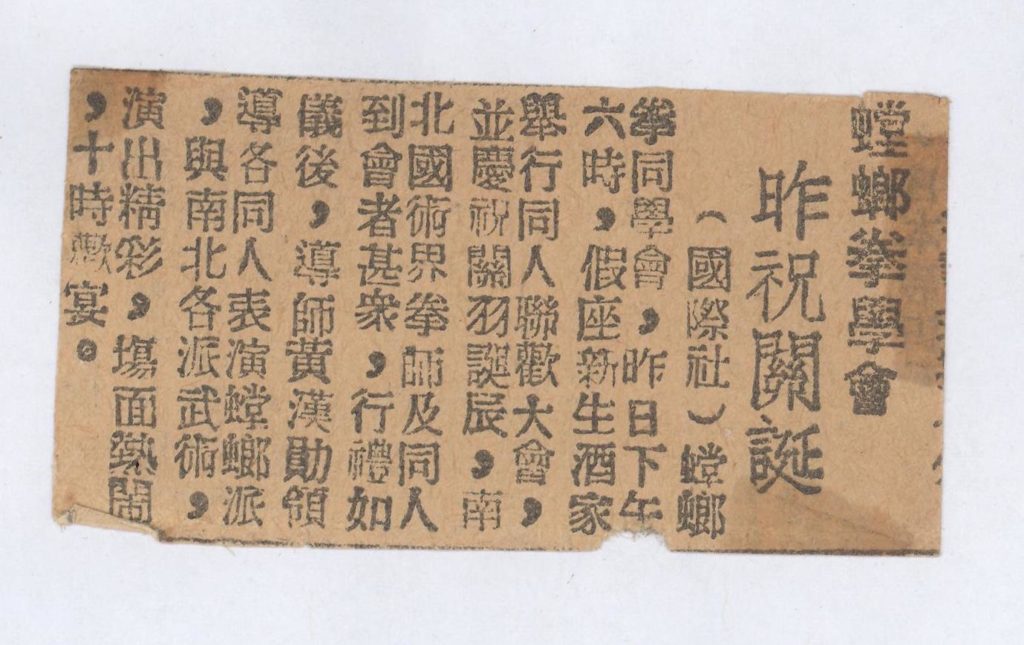 螳螂拳學會
昨祝關誕
（國際社）螳螂
拳同學會，昨日下午
六時，假座新生酒家
舉行同人聯歡大會，
並慶祝關羽誕辰，南
北國術界拳師及同人
到會者甚衆，行禮如
儀後，導師黃漢勛領
導各同人表演螳螂派
，與南北各派武術，
演出精彩，塲面熱鬧
，十時歡宴。